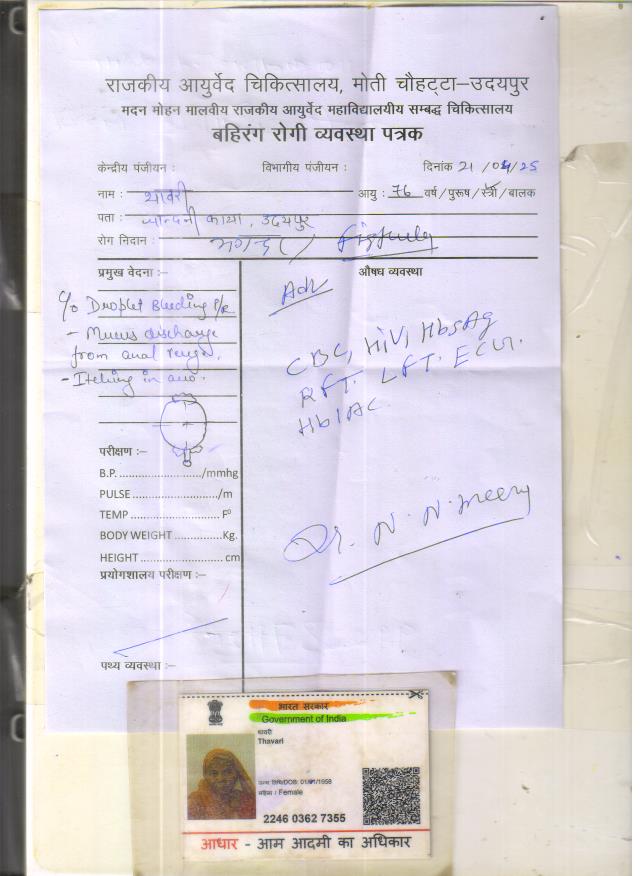 राजकीय आयुर्वेद चिकित्सालय, मोती चौहट्टा–उदयपुर
मदन मोहन मालवीय राजकीय आयुर्वेद महाविद्यालयीय सम्बद्ध चिकित्सालय
बहिरंग रोगी व्यवस्था पत्रक
केन्द्रीय पंजीयन : विभागीय पंजीयन : दिनांक 21 /04/25
नाम : थावरी आयु : 76 वर्ष/पुरूष/स्त्री/बालक
पता : काया, उदयपुर
रोग निदान : भगन्दर /
प्रमुख वेदना :– औषध व्यवस्था
c/o Droplet Bleeding P/R
- Mucus discharge
from anal
- Itching in
Adv
CBC, HIV, HbsAg
RFT. LFT. ECG.
Hb1AC
परीक्षण :–
B.P. ..................../mmhg
PULSE ...................../m
TEMP ....................... F⁰
BODY WEIGHT ............Kg.
HEIGHT ..................... cm
प्रयोगशालय परीक्षण :–
Dr. N. N.
पथ्य व्यवस्था :–
भारत सरकार
Government of India
थावरी
Thavari
जन्म तिथि/DOB: 01/01/1958
महिला / Female
2246 0362 7355
आधार - आम आदमी का अधिकार